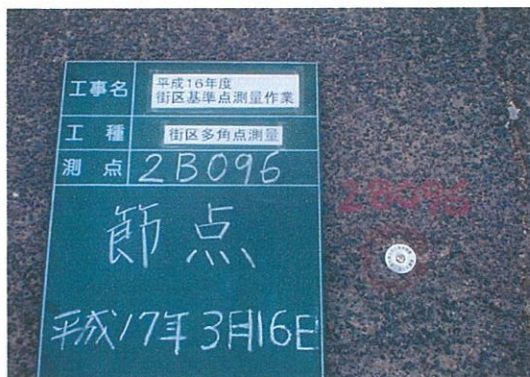 工事名
平成16年度
街区基準点測量作業
工種
街区多角点測量
測点
2B096
節点
平成17年3月16日
2B096